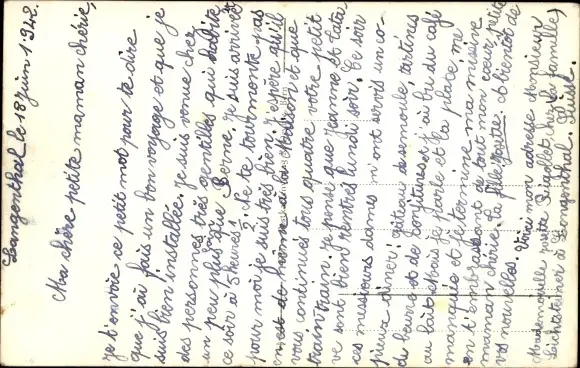 Langenthal le 18 juin 1948.
Ma chère petite maman chérie,
Je t'envoie ce petit mot pour te dire
que j'ai fais un bon voyage et que je
suis bien installée. Je suis venue chez
des personnes très gentilles qui habite
un peu plus que Berne. Je suis arrivée
ce soir à 5 heures ½. Ne te tourmente pas
pour moi je suis très bien. J'espère qu'il
en est de même à la et que
vous continues tous quatre votre petit
train train. Je pense que Jeanne et
ve sont bien rentrés lundi soir. Ce soir
ces messieurs dames m'ont servis un co-
pieux diner: gâteau de semoule tartines
de beurre et de confitures et j'ai bu du café
au lait mais je parle et la place me
manque et je termine ma missive
en t'embrassant de tout mon cœur petite
maman chérie. Ta fille Yvette. A bientôt de
vos nouvelles. Voici mon adresse Monsieur
Mademoiselle Yvette chez la famille
à Langenthal. Suisse.